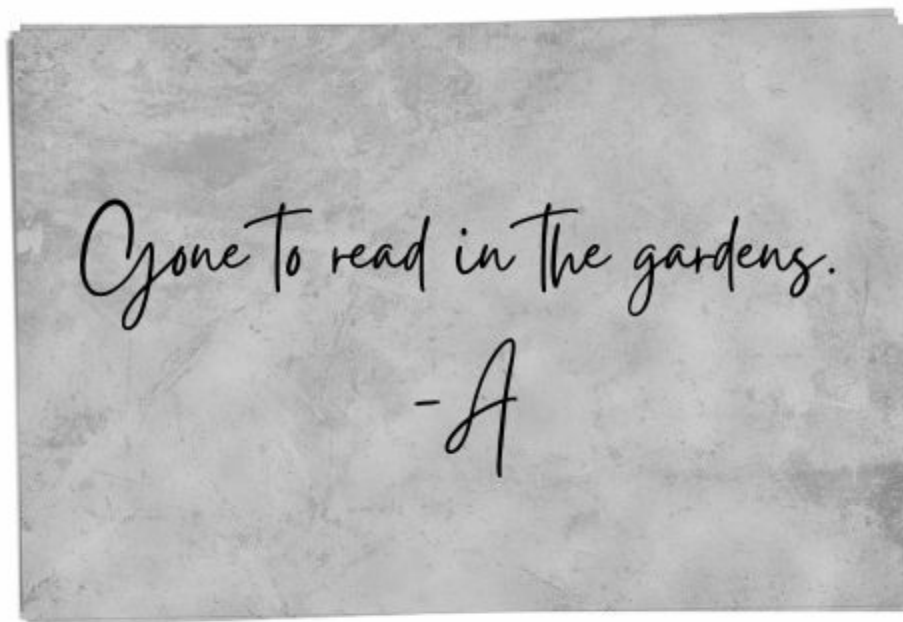 Gone to read in the gardens.
-A